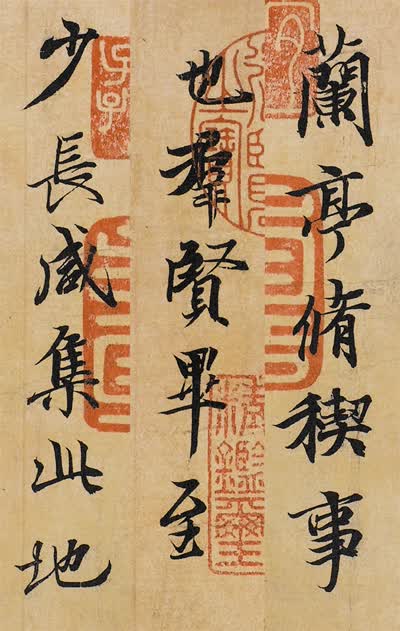 蘭亭脩稧事
也羣賢畢至
少長咸集此地